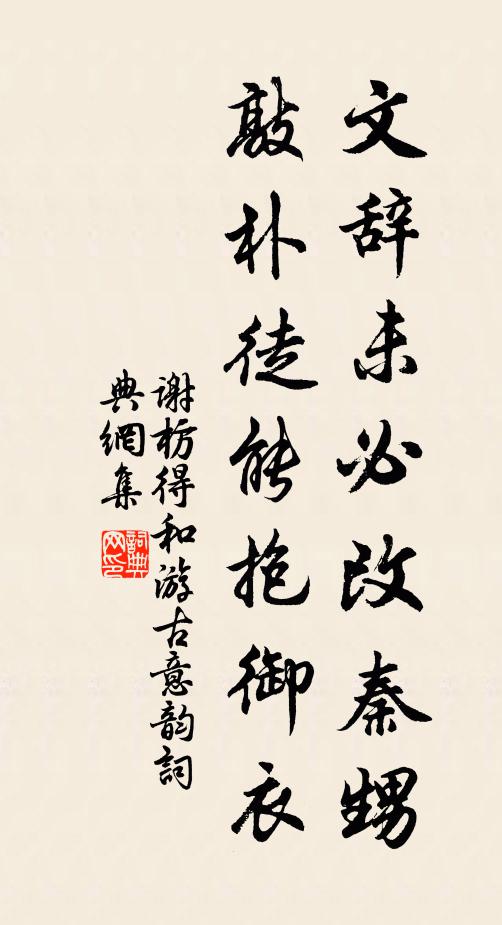 文辞未必改秦甥
敲朴徒能抱御衣
谢枋得和游古意韵詞
典網集
詞典网印